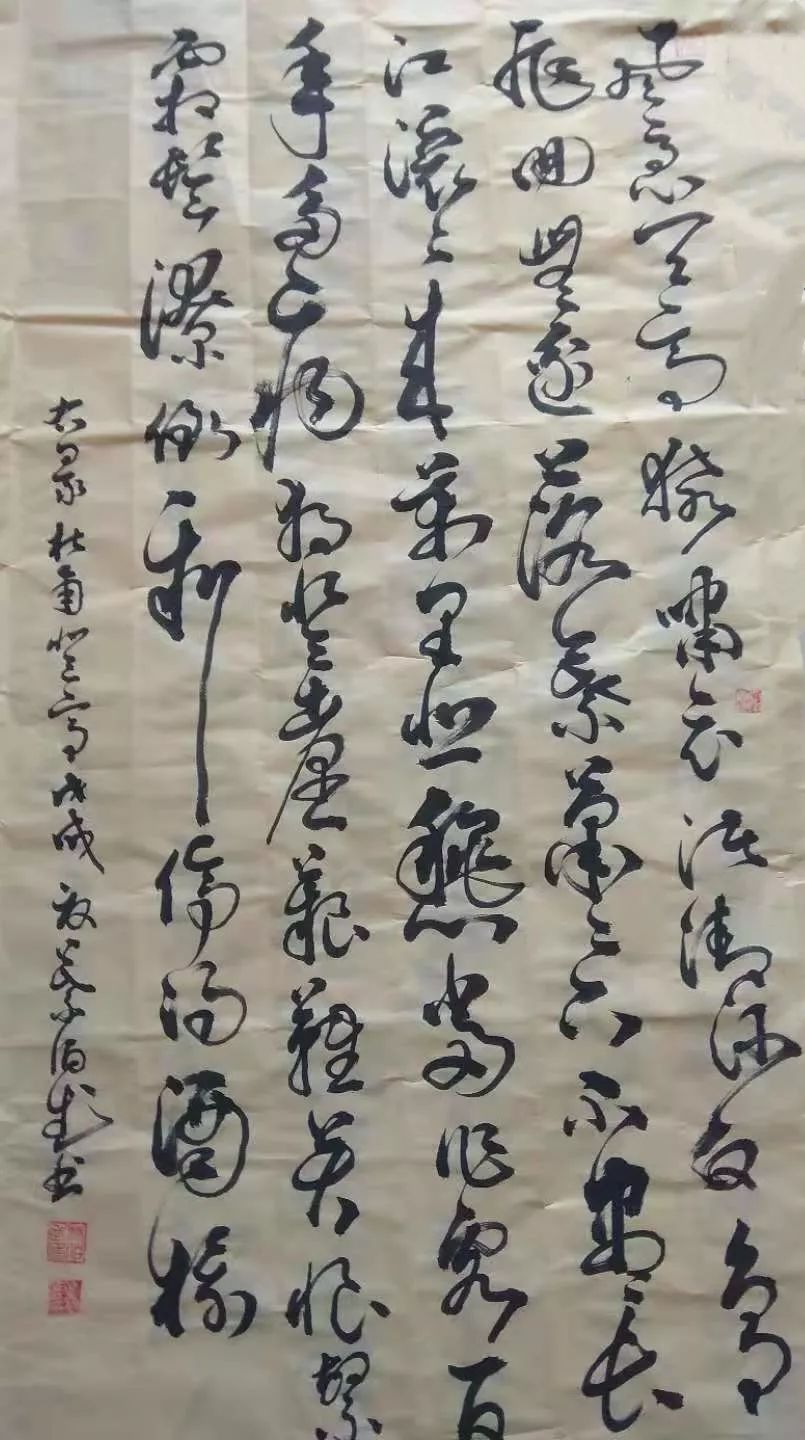 風急天高猿嘯哀渚清沙白鳥
飛回無邊落葉蕭蕭下不盡長
江滾滾來萬里悲愁常作客百
年多病獨登臺艱難苦恨繁
霜鬢潦倒新停濁酒杯
右录杜甫登高戊戌书